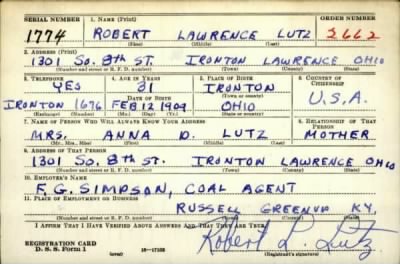 SERIAL NUMBER 1. NAME (Print) ORDER NUMBER
1774 ROBERT LAWRENCE LUTZ 2662
(First) (Middle) (Last)
2. ADDRESS (Print)
1301 SO. 8TH ST. IRONTON LAWRENCE OHIO
(Number and street or R. F. D. number) (Town) (County) (State)
3. TELEPHONE 4. AGE IN YEARS 5. PLACE OF BIRTH 6. COUNTRY OF CITIZENSHIP
YES 31 IRONTON
DATE OF BIRTH (Town or county)
IRONTON 1676 FEB 12 1909 OHIO U.S.A.
(Exchange) (Number) (Mo.) (Day) (Yr.) (State or country)
7. NAME OF PERSON WHO WILL ALWAYS KNOW YOUR ADDRESS 8. RELATIONSHIP OF THAT PERSON
MRS. ANNA D. LUTZ MOTHER
(Mr., Mrs., Miss) (First) (Middle) (Last)
9. ADDRESS OF THAT PERSON
1301 SO. 8TH ST. IRONTON LAWRENCE OHIO
(Number and street or R. F. D. number) (Town) (County) (State)
10. EMPLOYER'S NAME
F. G. SIMPSON, COAL AGENT
11. PLACE OF EMPLOYMENT OR BUSINESS
RUSSELL GREENUP KY.
(Number and street or R. F. D. number) (Town) (County) (State)
I AFFIRM THAT I HAVE VERIFIED ABOVE ANSWERS AND THAT THEY ARE TRUE.
REGISTRATION CARD
D. S. S. Form 1 (over) Robert L. Lutz